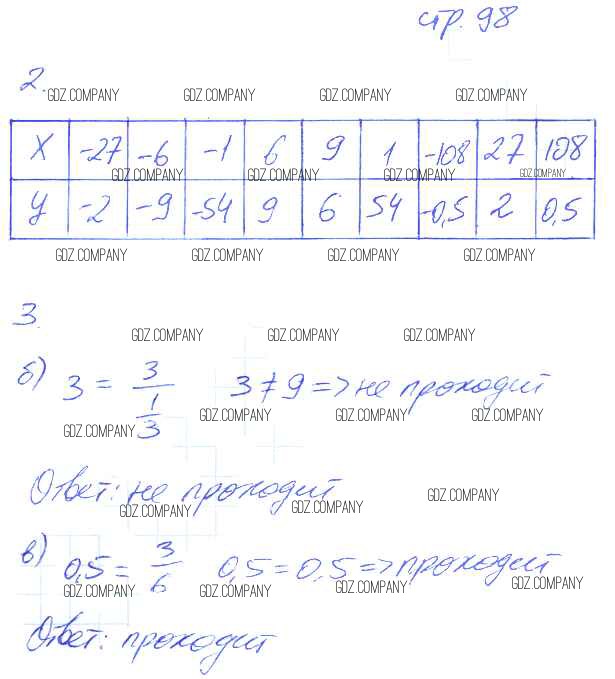 стр. 98
2.
GDZ.COMPANY GDZ.COMPANY GDZ.COMPANY GDZ.COMPANY
X -27 -6 -1 6 9 1 -108 27 108
GDZ.COMPANY GDZ.COMPANY GDZ.COMPANY GDZ.COMPANY
У -2 -9 -54 9 6 54 -0,5 2 0,5
GDZ.COMPANY GDZ.COMPANY GDZ.COMPANY GDZ.COMPANY
3.
GDZ.COMPANY GDZ.COMPANY GDZ.COMPANY
б) 3 = 3/(1/3) 3 ≠ 9 => не проходит
GDZ.COMPANY GDZ.COMPANY GDZ.COMPANY GDZ.COMPANY
Ответ: не проходит
GDZ.COMPANY GDZ.COMPANY GDZ.COMPANY
в) 0,5 = 3/6 0,5 = 0,5 => проходит
GDZ.COMPANY GDZ.COMPANY GDZ.COMPANY GDZ.COMPANY
Ответ: проходит